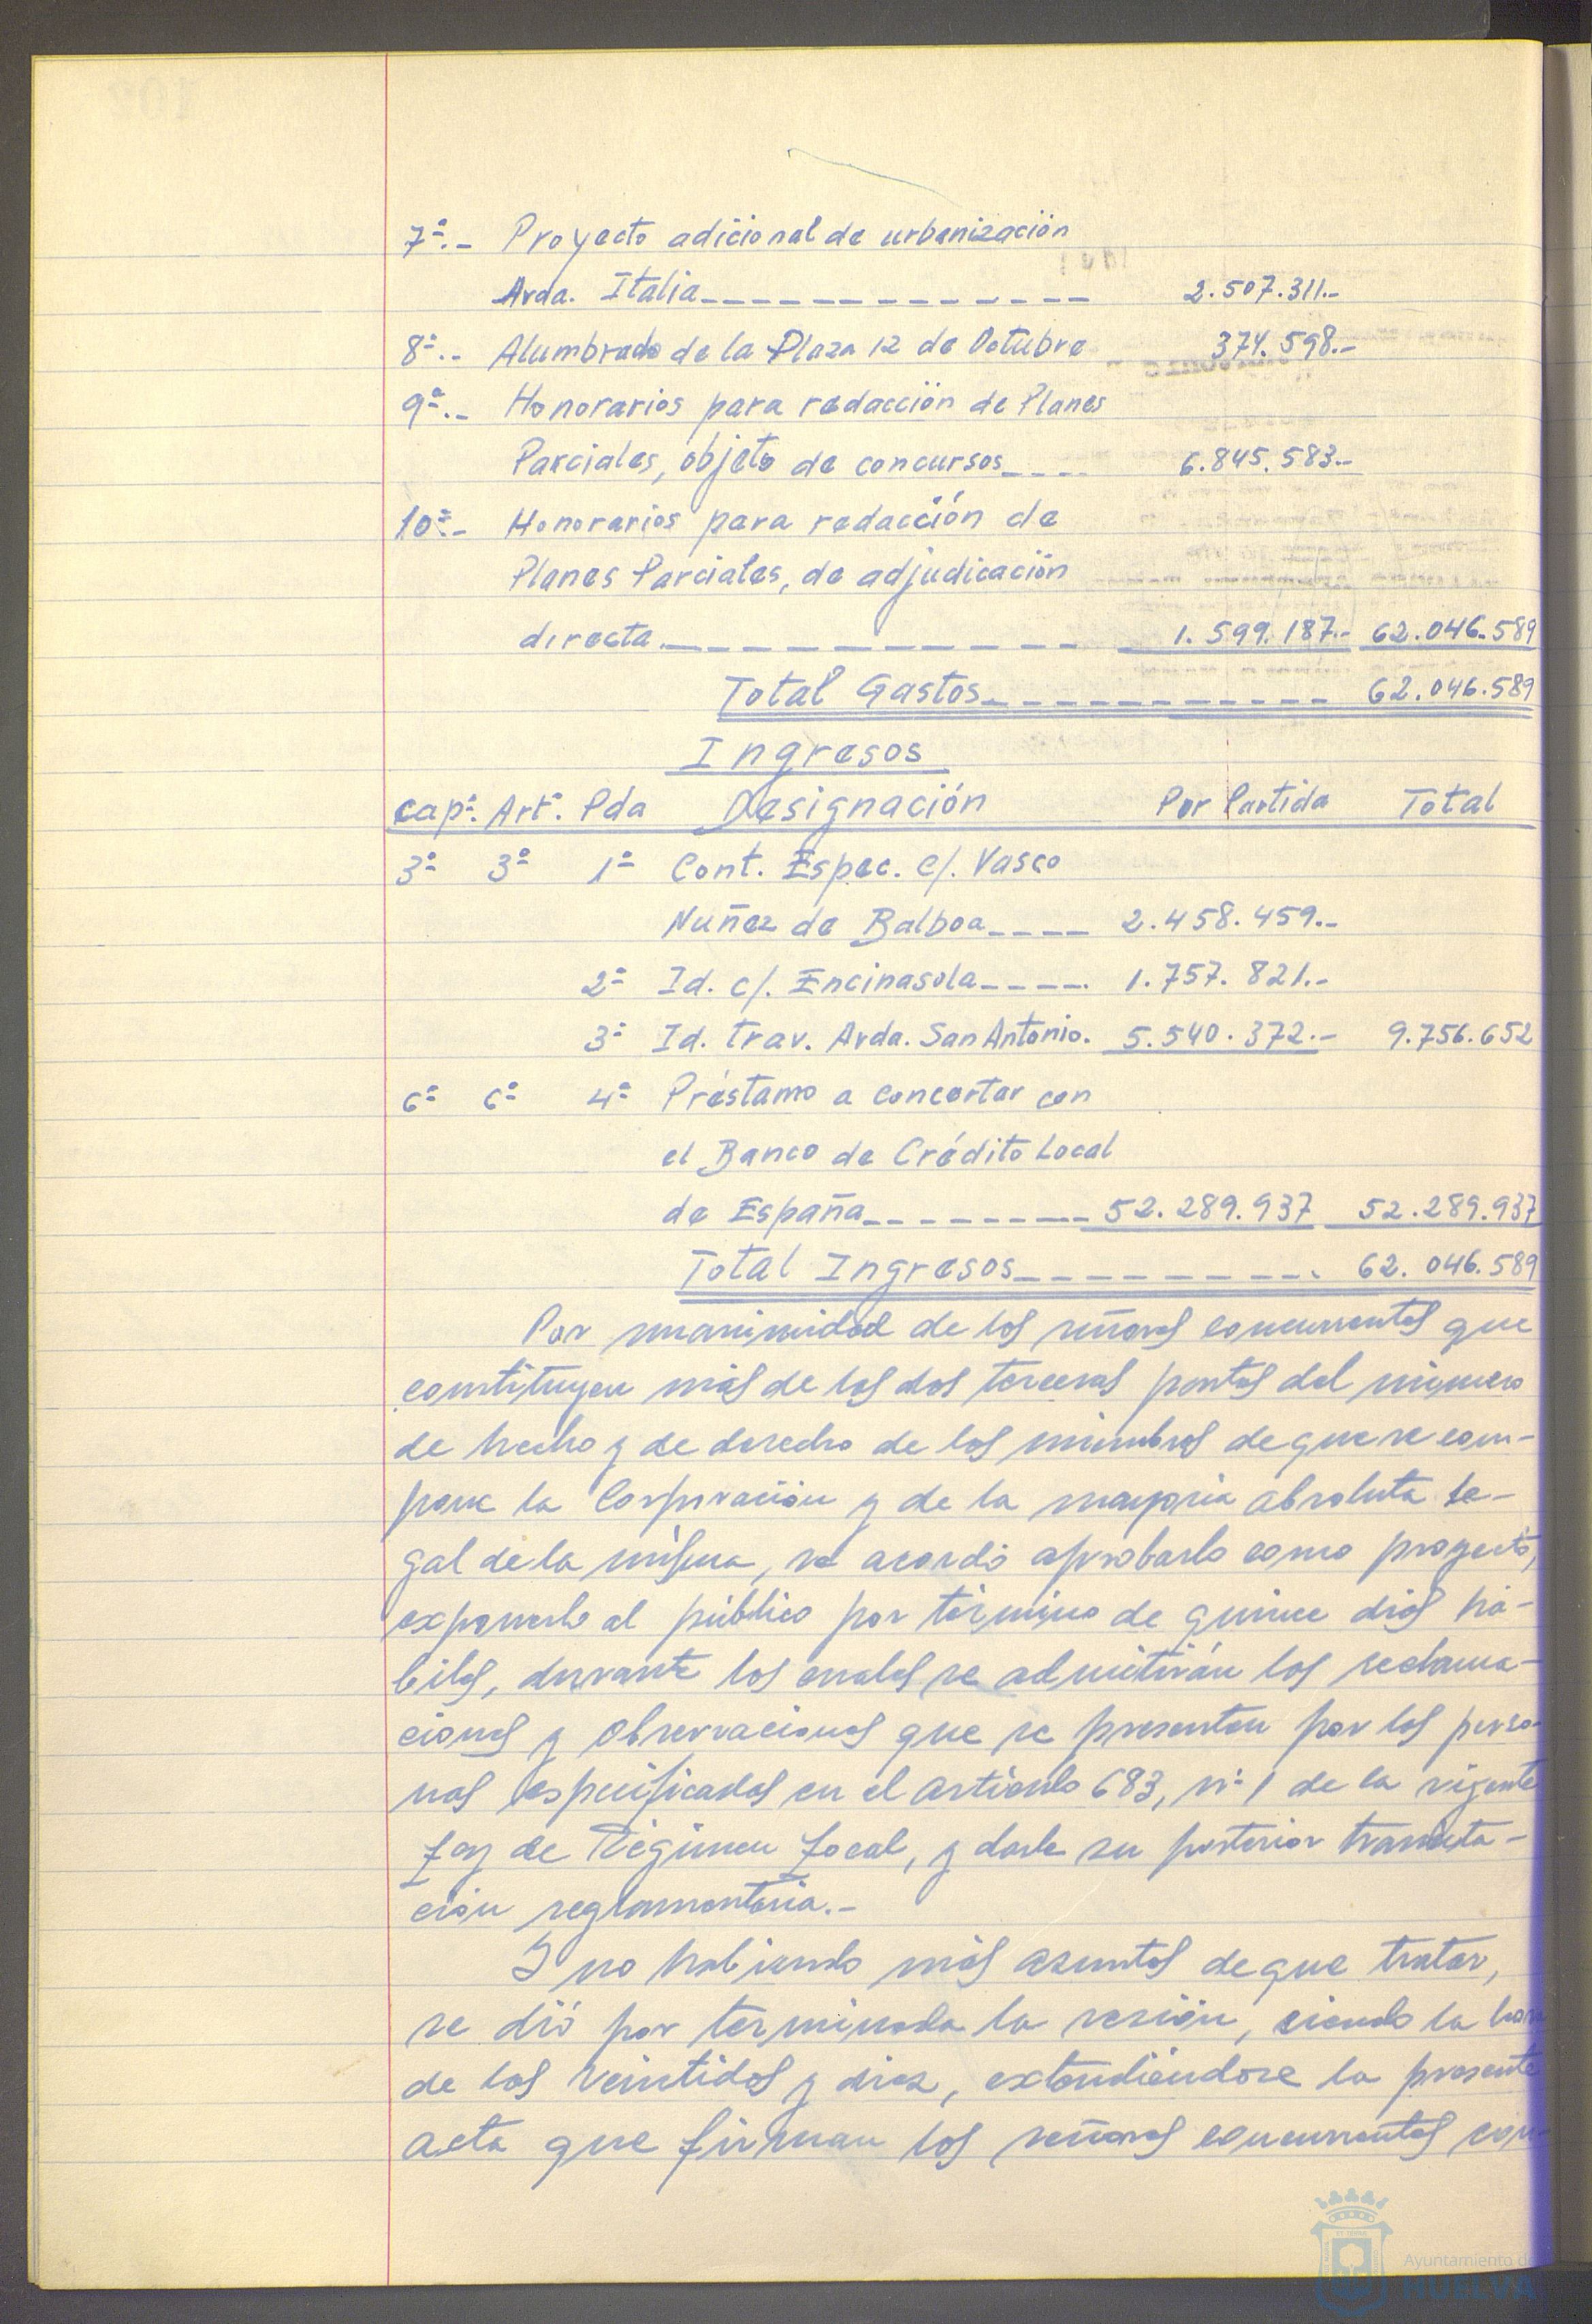 7ª.- Proyecto adicional de urbanización
Avda. Italia 2.507.311.-
8ª.- Alumbrado de la Plaza 12 de Octubre 374.598.-
9ª.- Honorarios para redacción de Planes
Parciales, objeto de concursos 6.845.583.-
10ª.- Honorarios para redacción de
Planes Parciales, de adjudicación
directa 1.599.187.- 62.046.589
Total Gastos 62.046.589
Ingresos
Capº. Artº. Pda Designación Por Partida Total
3º 3º 1ª Cont. Espec. c/. Vasco
Nuñez de Balboa 2.458.459.-
2ª Id. c/. Encinasola 1.757.821.-
3ª Id. trav. Avda. San Antonio. 5.540.372.- 9.756.652
6º 6º 4ª Préstamo a concertar con
el Banco de Crédito Local
de España 52.289.937 52.289.937
Total Ingresos 62.046.589
Por unanimidad de los señores concurrentes que
constituyen más de las dos terceras partes del número
de hecho y de derecho de los miembros de que se com-
pone la Corporación y de la mayoría absoluta le-
gal de la misma, se acordó aprobarlo como proyecto,
exponerlo al público por término de quince días há-
biles, durante los cuales se admitirán las reclama-
ciones y observaciones que se presenten por las perso-
nas especificadas en el artículo 683, nº 1 de la vigente
Ley de Régimen Local, y darle su posterior tramita-
ción reglamentaria.-
Y no habiendo más asuntos de que tratar,
se dió por terminada la sesión, siendo la hora
de las veintidos y diez, extendiéndose la presente
acta que firman los señores concurrentes con-
Ayuntamiento de
HUELVA